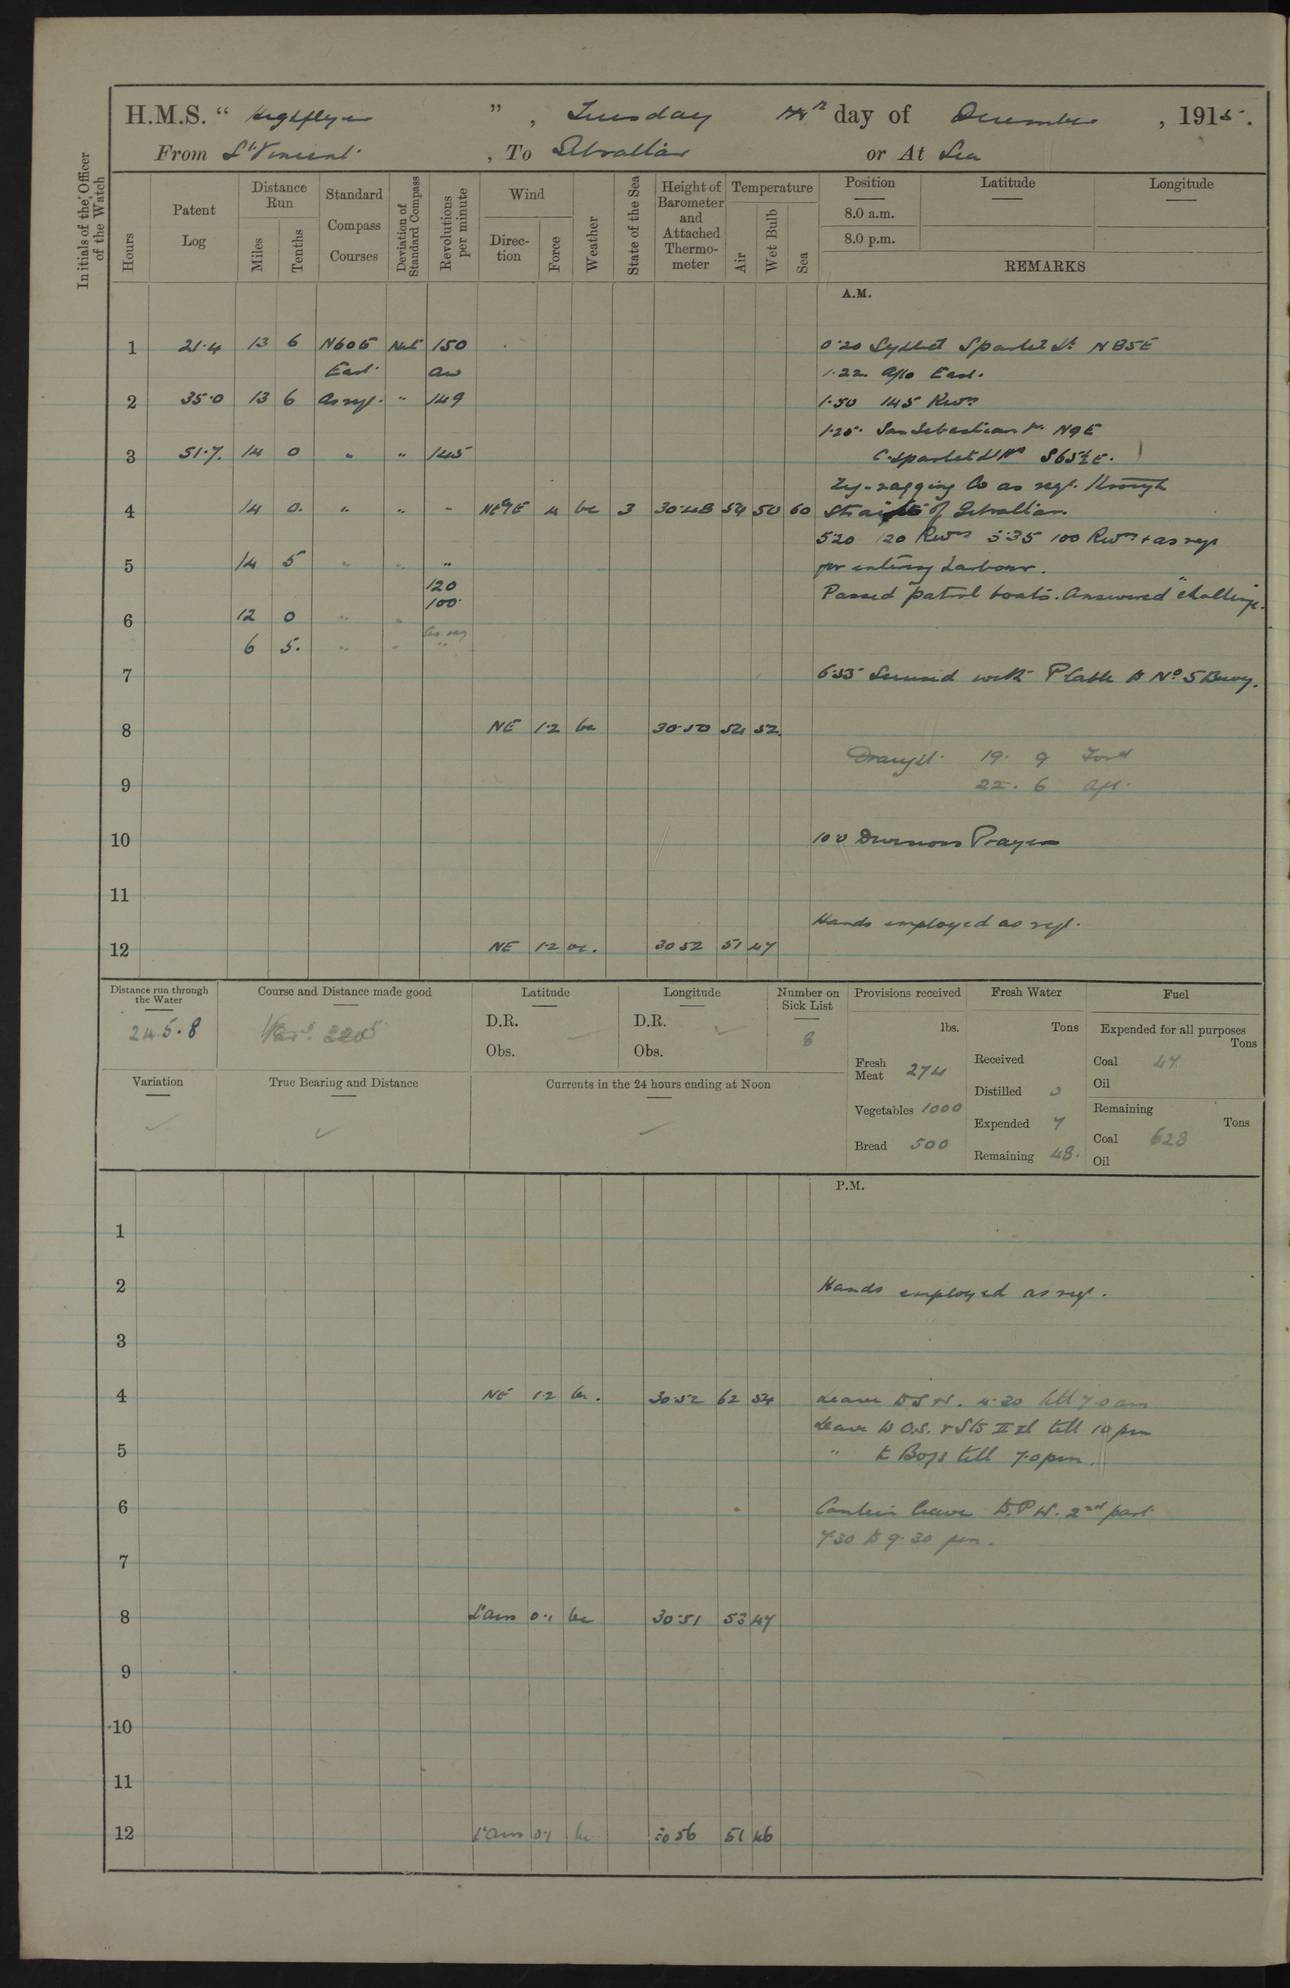 H.M.S. " Highflyer ", Tuesday 14th day of December, 1915.
From St Vincent, To Gibraltar or At Sea
Initials of the Officer of the Watch
Hours
Patent Log
Distance Run
Miles
Tenths
Standard Compass Courses
Deviation of Standard Compass
Revolutions per minute
Wind
Direction
Force
Weather
State of the Sea
Height of Barometer and Attached Thermometer
Temperature
Air
Wet Bulb
Sea
Position
8.0 a.m.
8.0 p.m.
Latitude
Longitude
REMARKS
A.M.
1 21.4 13 6 N60E Nil 150 0.20 Sighted Spartel Lt N85E
East. 1.22 A/co East.
2 35.0 13 6 As req. " 149 1.50 145 Revs
1.25. San Sebastian Lt. N9E
3 51.7. 14 0 " " 145 C. Spartel Lt S65½E.
Zig-zagging Co as req. through
4 14 0. " " " NE 4 bc 3 30.48 54 50 60 Straits of Gibraltar
5.20 120 Revs 5.35 100 Revs & as req
5 14 5 " " " for entering harbour.
120
100
Passed patrol boats. Answered "challenge.
6 12 0 " "
6 5. " " as req
7 6.55 Secured with P Cable to No. 5 Buoy.
8 NE 1.2 bc 30.50 54 52
Draught. 19. 9 Ford
9 22. 6 Aft.
10 10.0 Divisions Prayers
11
Hands employed as req.
12 NE 1.2 bc. 30 52 51 47
Distance run through the Water
24.5.8
Course and Distance made good
Latitude
D.R.
Obs.
Longitude
D.R.
Obs.
Number on Sick List
8
Variation
True Bearing and Distance
Currents in the 24 hours ending at Noon
Provisions received
lbs.
Fresh Meat 274
Vegetables 1000
Bread 500
Fresh Water
Tons
Received
Distilled 0
Expended 7
Remaining 48.
Fuel
Expended for all purposes
Tons
Coal 47
Oil
Remaining
Tons
Coal 628
Oil
P.M.
1
2 Hands employed as req.
3
4 NE 1.2 bc. 30.52 62 54 Leave to 4.30 till 7.0 am
Leave to O.S. & Sto II Cl till 10 pm
5 " to Boys till 7.0 pm.
6 Canteen leave to P.W. 2nd part
7.30 to 9.30 pm.
7
8 Calm 0.1 bc 30.51 53 47
9
10
11
12 Calm 0.1 bc 30 56 51 46